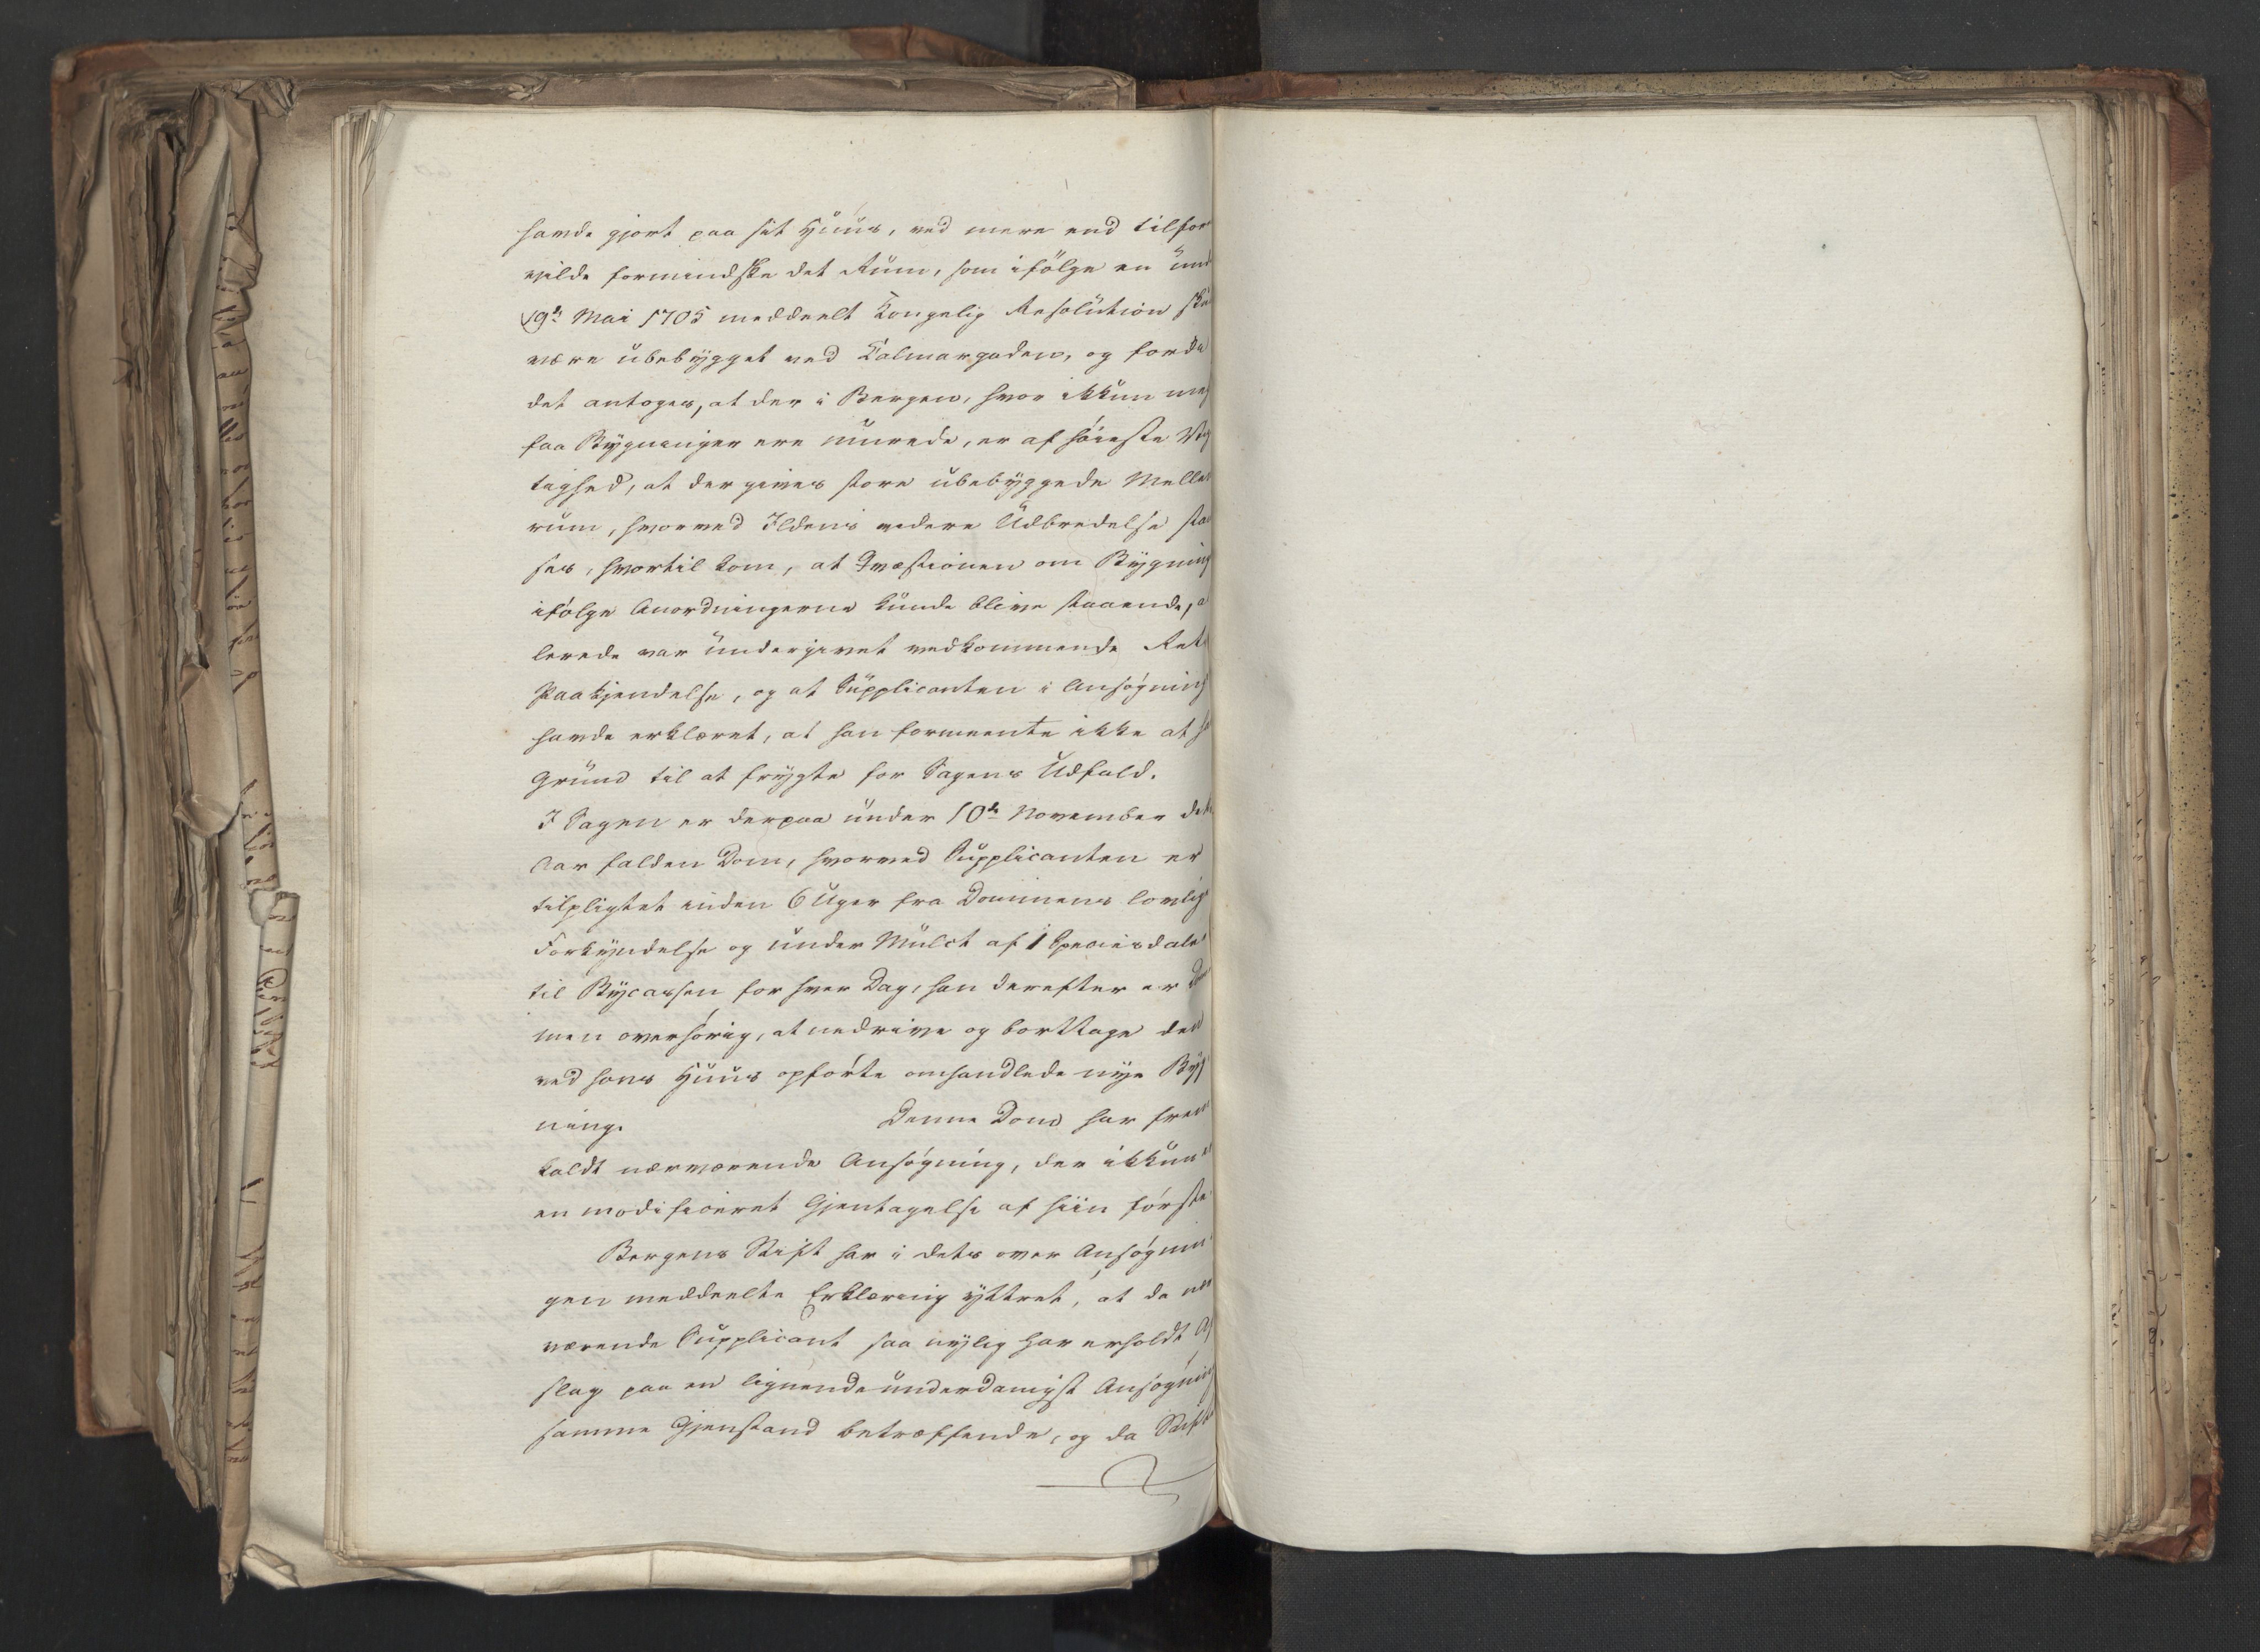 havde gjort paa sit Huus, ved mere end tilfor
vilde formindske det Rum, som ifölge en und
19de Mai 1705 meddeelt Kongelig Resolution sku
være ubebygget ved Kalmargaden, og forda
det antoges, at der i Bergen, hvor ikkun meg
faa Bygninger ere murede, er af höieste Vig
tighed, at der gives store ubebyggede Mellem
rum, hvorved Ildens videre Udbredelse stand
ses, hvortil kom, at Qvæstionen om Bygning
ifölge Anordningerne kunde blive staaende, al
lerede var undergivet vedkommende Rets
Paakjendelse, og at Supplicanten i Ansögning
havde erklæret, at han formeente ikke at ha
Grund til at frygte for Sagens Udfald.
I Sagen er derpaa under 10de November dette
Aar falden Dom, hvorved Supplicanten er
tilpligtet inden 6 Uger fra Dommens lovlige
Forkyndelse og under Mulct af 1 Speciesdaler
til Bycassen for hver Dag, han derefter er Dom
men overhörig, at nedrive og borttage den
ved hans Huus opförte omhandlede nye Byg
ning. Denne Dom har frem
kaldt nærværende Ansögning, der ikkun er
en modificeret Gjentagelse af hiin förste.
Bergens Stift har i dets over Ansögnin
gen meddeelte Erklæring yttret, at da nær
værende Supplicant saa nylig har erholdt Af
slag paa en lignende underdanigst Ansögning
samme Gjenstand betræffende, og da Stiftet